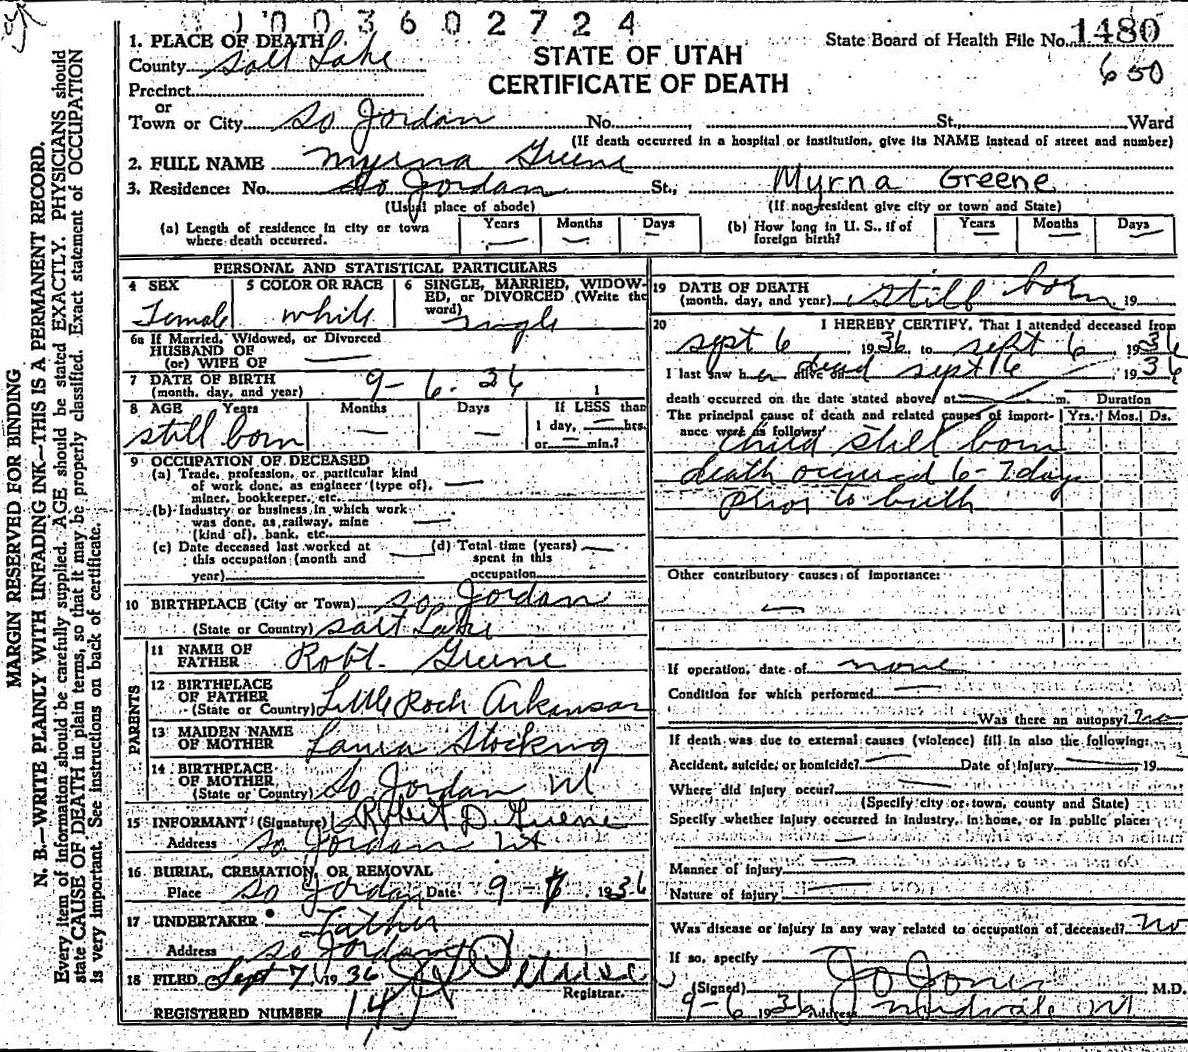 1003602724
1. PLACE OF DEATH
County Salt Lake
STATE OF UTAH
CERTIFICATE OF DEATH
State Board of Health File No. 1480
650
Precinct
or
Town or City So Jordan No. , St., Ward
(If death occurred in a hospital or institution, give its NAME instead of street and number)
2. FULL NAME Myrna Greene
3. Residence: No. So Jordan St., Myrna Greene
(Usual place of abode) (If non-resident give city or town and State)
(a) Length of residence in city or town where death occurred. Years — Months — Days —
(b) How long in U. S., if of foreign birth? Years — Months — Days —
PERSONAL AND STATISTICAL PARTICULARS
4 SEX Female
5 COLOR OR RACE white
6 SINGLE, MARRIED, WIDOWED, or DIVORCED (Write the word) single
6a If Married, Widowed, or Divorced
HUSBAND OF
(or) WIFE OF —
7 DATE OF BIRTH
(month, day, and year) 9-6-36
8 AGE Years still born Months — Days —
If LESS than
1 day, — hrs.
or — min.?
9 OCCUPATION OF DECEASED
(a) Trade, profession, or particular kind
of work done, as engineer (type of),
miner, bookkeeper, etc. —
(b) Industry or business in which work
was done, as railway, mine
(kind of), bank, etc. —
(c) Date deceased last worked at
this occupation (month and
year) —
(d) Total time (years)
spent in this
occupation —
10 BIRTHPLACE (City or Town) So Jordan
(State or Country) Salt Lake
PARENTS
11 NAME OF
FATHER Robt. Greene
12 BIRTHPLACE
OF FATHER
(State or Country) Little Rock Arkansas
13 MAIDEN NAME
OF MOTHER Laura Stocking
14 BIRTHPLACE
OF MOTHER
(State or Country) So Jordan Ut
15 INFORMANT (Signature) Robert D. Greene
Address So. Jordan Ut
16 BURIAL, CREMATION, OR REMOVAL
Place So Jordan Date 9- 1936
17 UNDERTAKER Father
Address So Jordan
18 FILED Sept 7 1936
Registrar.
REGISTERED NUMBER 14
19 DATE OF DEATH
(month, day, and year) Still born, 19
20 I HEREBY CERTIFY, That I attended deceased from
Sept 6, 1936, to Sept 6, 1936
I last saw her alive on dead Sept 6, 1936
death occurred on the date stated above, at — m. Duration
The principal cause of death and related causes of importance were as follows: Yrs. Mos. Ds.
Child still born
death occured 6-7 days
prior to birth
Other contributory causes of importance:
—
If operation, date of none
Condition for which performed —
Was there an autopsy? no
If death was due to external causes (violence) fill in also the following:
Accident, suicide, or homicide? — Date of injury —, 19
Where did injury occur? —
(Specify city or town, county and State)
Specify whether injury occurred in industry, in home, or in public place:
—
Manner of injury —
Nature of injury —
Was disease or injury in any way related to occupation of deceased? no
If so, specify
(Signed) Jo Jones M.D.
9-6 1936 Address Midvale Ut
MARGIN RESERVED FOR BINDING
N. B.—WRITE PLAINLY WITH UNFADING INK—THIS IS A PERMANENT RECORD.
Every item of information should be carefully supplied. AGE should be stated EXACTLY. PHYSICIANS should
state CAUSE OF DEATH in plain terms, so that it may be properly classified. Exact statement of OCCUPATION
is very important. See instructions on back of certificate.